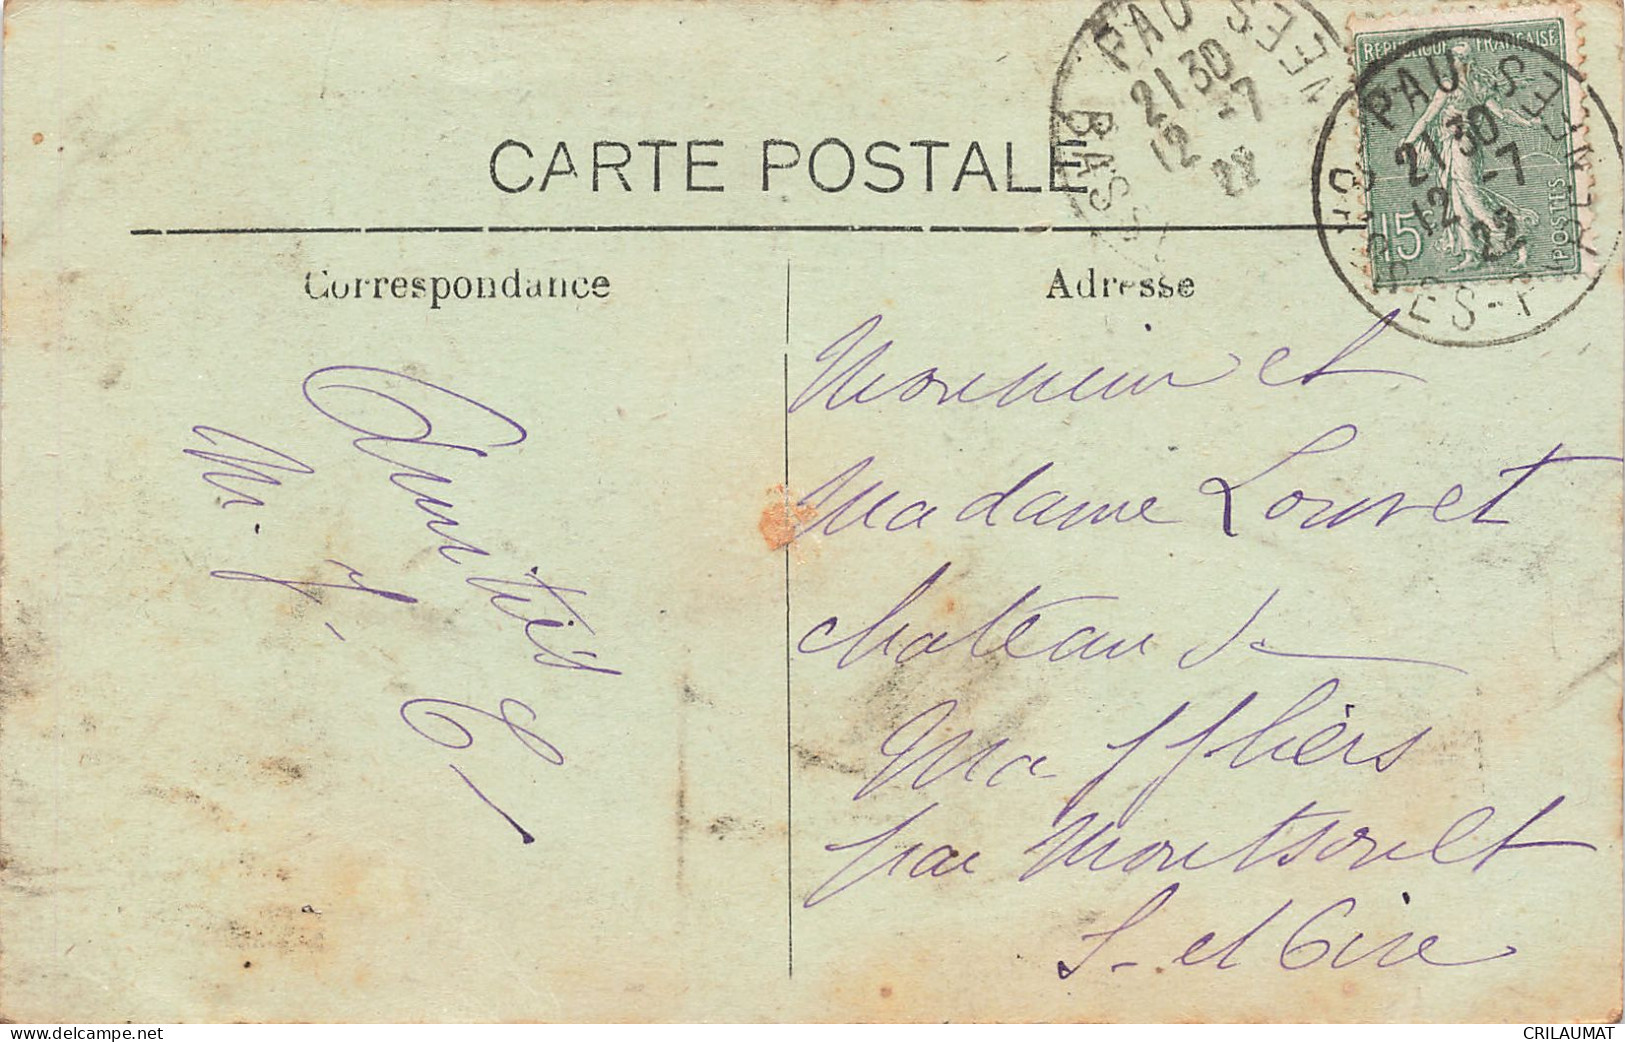 CARTE POSTALE
Correspondance
Adresse
RÉPUBLIQUE FRANÇAISE
15c
POSTES
PAU
21 30
12 -7
22
BASSES-P
PAU
21 30
12 -7
22
BASSES-PYRENEES
Amitiés
Monsieur et
Madame Louvet
chateau de
Maffliers
par Montsoult
S- et Oise
www.delcampe.net
CRILAUMAT